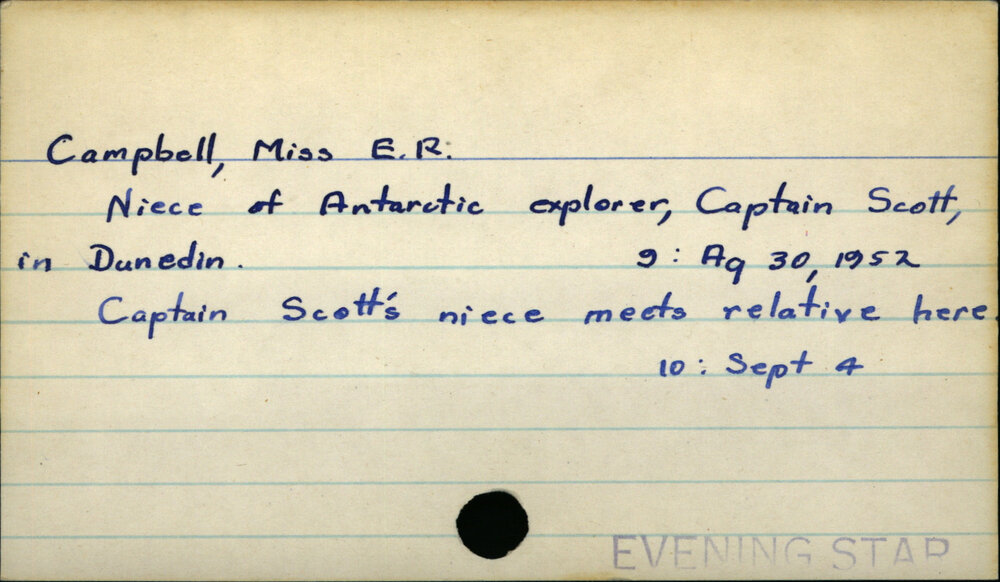 Campbell, Miss E.R.
Niece of Antarctic explorer, Captain Scott,
in Dunedin. 9 : Ag 30, 1952
Captain Scott's niece meets relative here.
10 : Sept 4
EVENING STAR